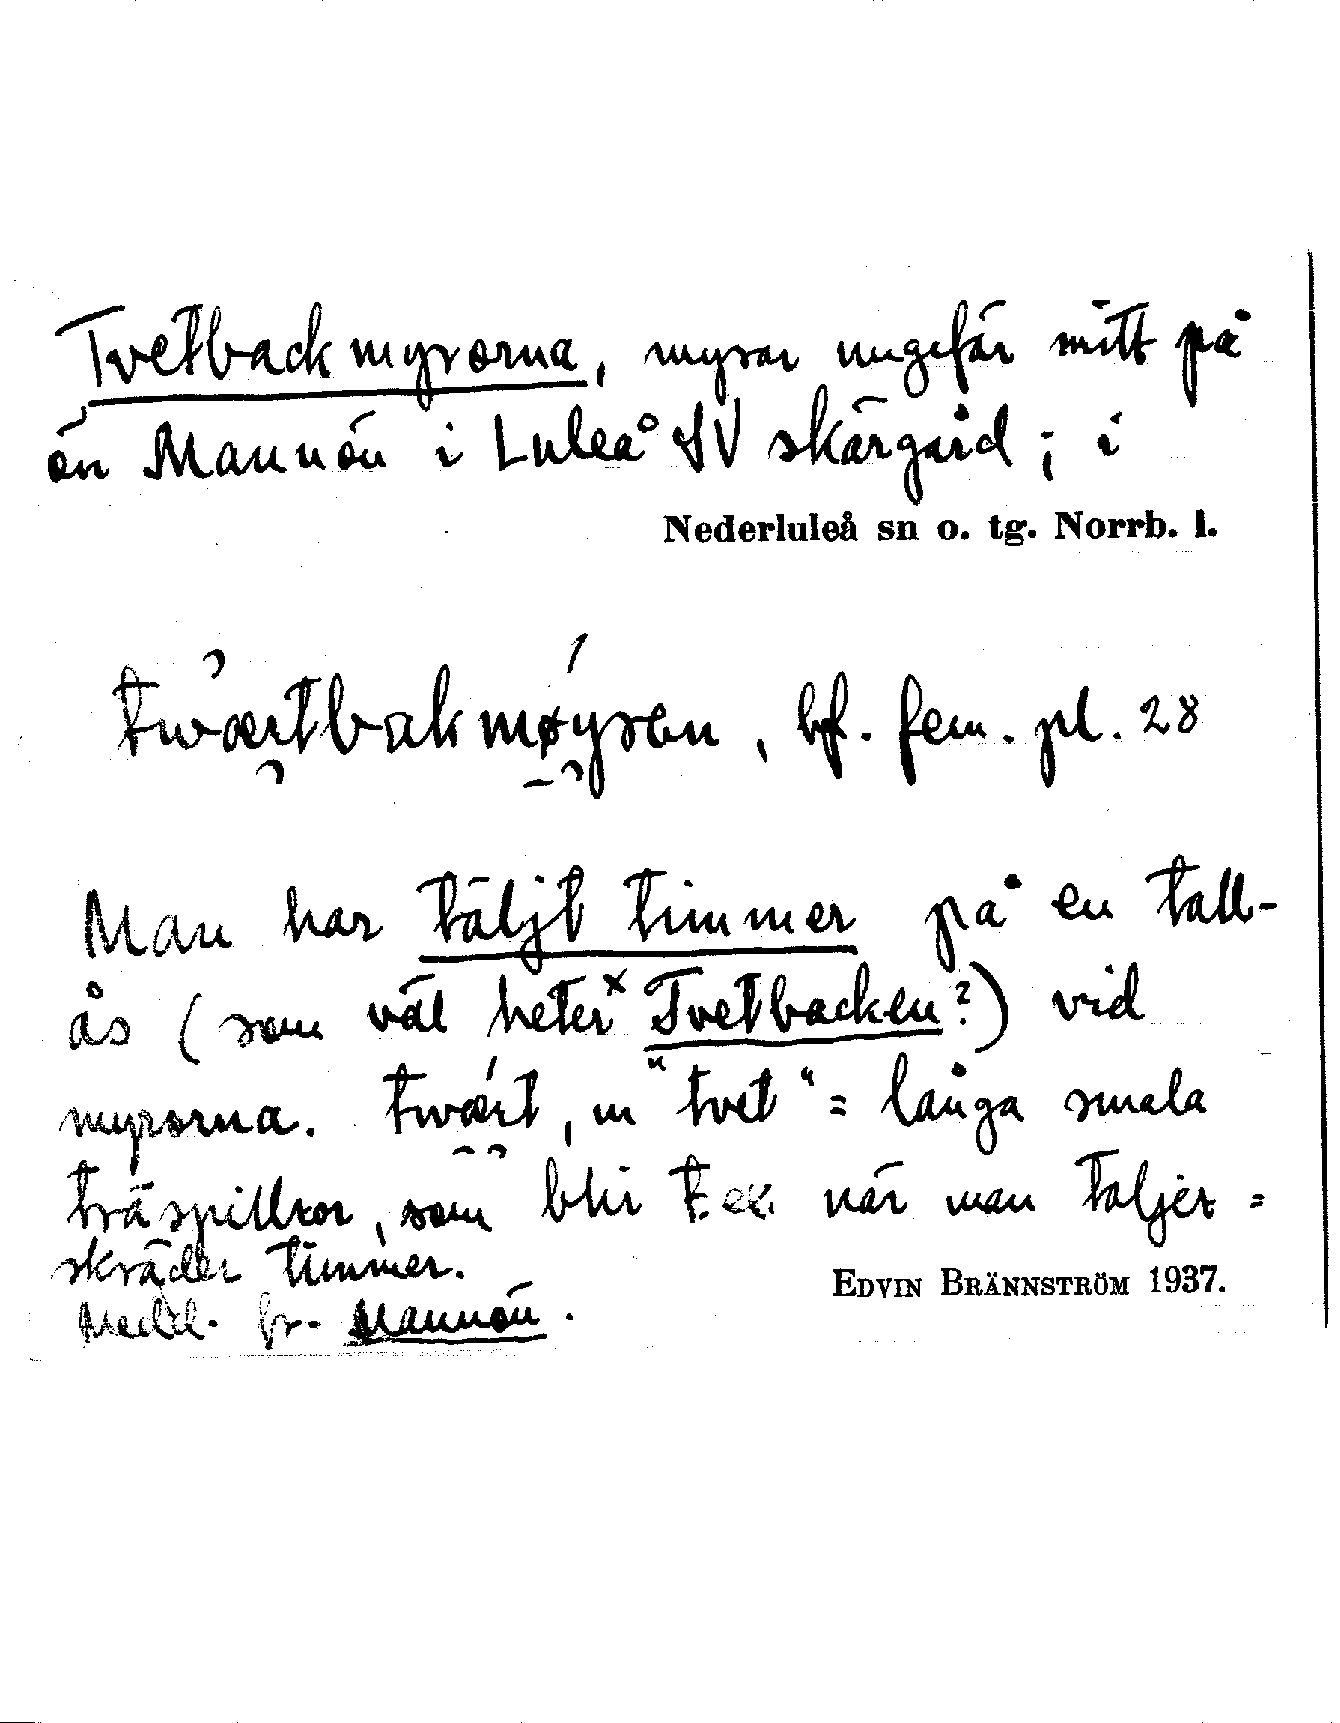 Tvetbackmyrorna, myrar ungefär mitt på
ön Mannön i Luleå SV skärgård; i
Nederluleå sn o. tg. Norrb. l.
bf. fem. pl. 28
Man har täljt timmer på en tall-
ås (som väl heter × Tvetbacken?) vid
myrorna. twært, m "tvet" = långa smala
träspillror, som blir t. ex. när man täljer =
skräder timmer.
EDVIN BRÄNNSTRÖM 1937.
Medd. fr. Mannön.